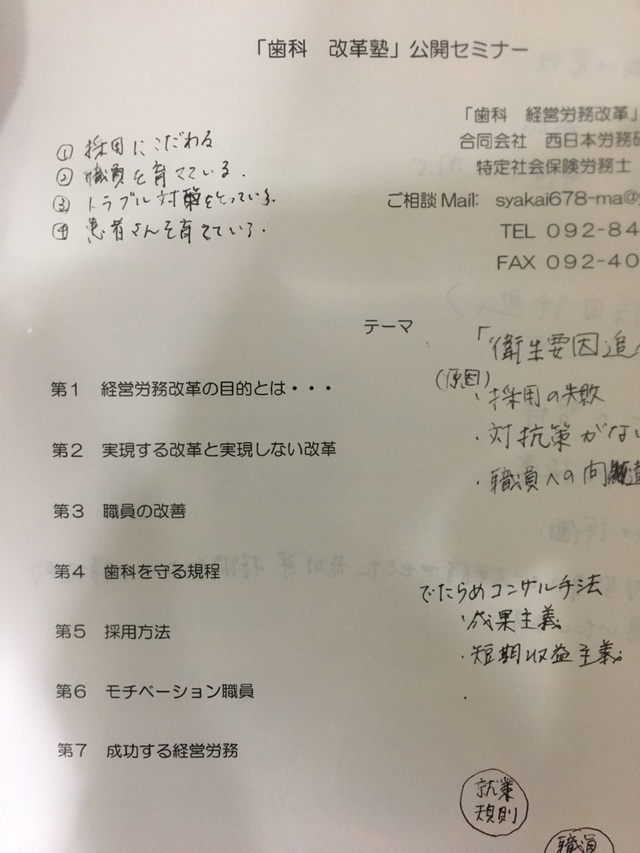 「歯科　改革塾」公開セミナー
「歯科　経営労務改革」
合同会社　西日本労務研
特定社会保険労務士
ご相談Mail:　syakai678-ma@y
TEL 092-84
FAX 092-40
① 採用にこだわる
② 職員を育てている.
③ トラブル対策をとっている.
④ 患者さんを育てている.
テーマ
「衛生要因追
(原因)
・採用の失敗
・対抗策がない
・職員への問題
第1　経営労務改革の目的とは・・・
第2　実現する改革と実現しない改革
第3　職員の改善
第4　歯科を守る規程
第5　採用方法
第6　モチベーション職員
第7　成功する経営労務
でたらめコンサル手法
・成果主義
・短期収益主義
・
就業
規則
職員